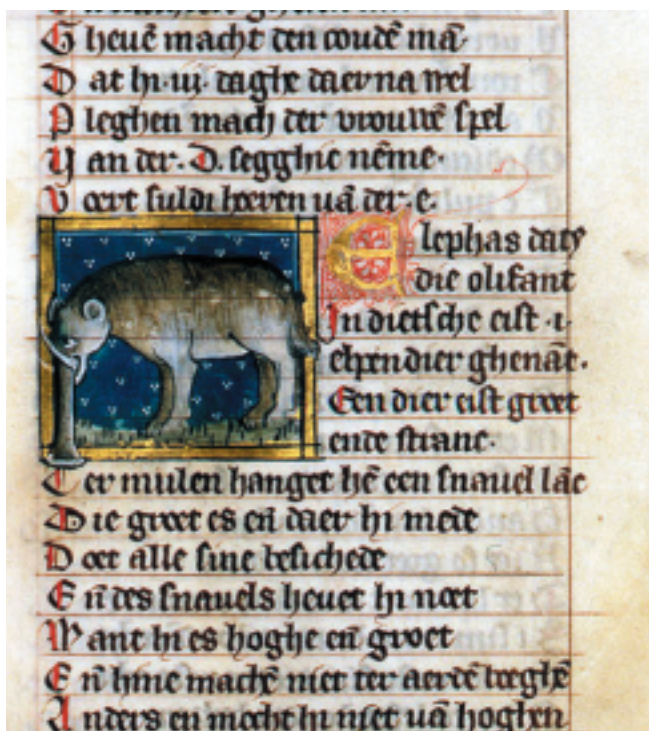 G heuē macht den coudē mā
D at hi .iij. daghe daer na wel
P leghen mach der vrouwē spel
V an der .D. segghic nēme.
V oert suldi horen uā der .e.
E lephas dats
die olifant
In dietsche eist .i.
elpendier ghenāt.
Een dier eist groet
ende stranc.
T er mulen hanget hē een snauel lāc
D ie groet es eñ daer hi mede
D oet alle sine besichede
E ñ des snauels heuet hi noet
W ant hi es hoghe eñ groet
E ñ hine machē niet ter aerdē beeghē
A nders en mochte hi niet uā hoghen